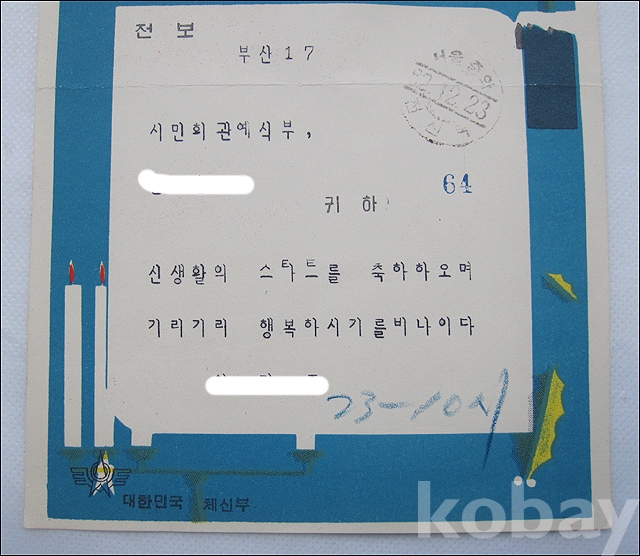 전보
부산17
서울중앙
82.12.23
시민회관예식부,
64
귀하
신생활의 스타트를 축하하오며
기리기리 행복하시기를비나이다
23-10시
대한민국 체신부
kobay